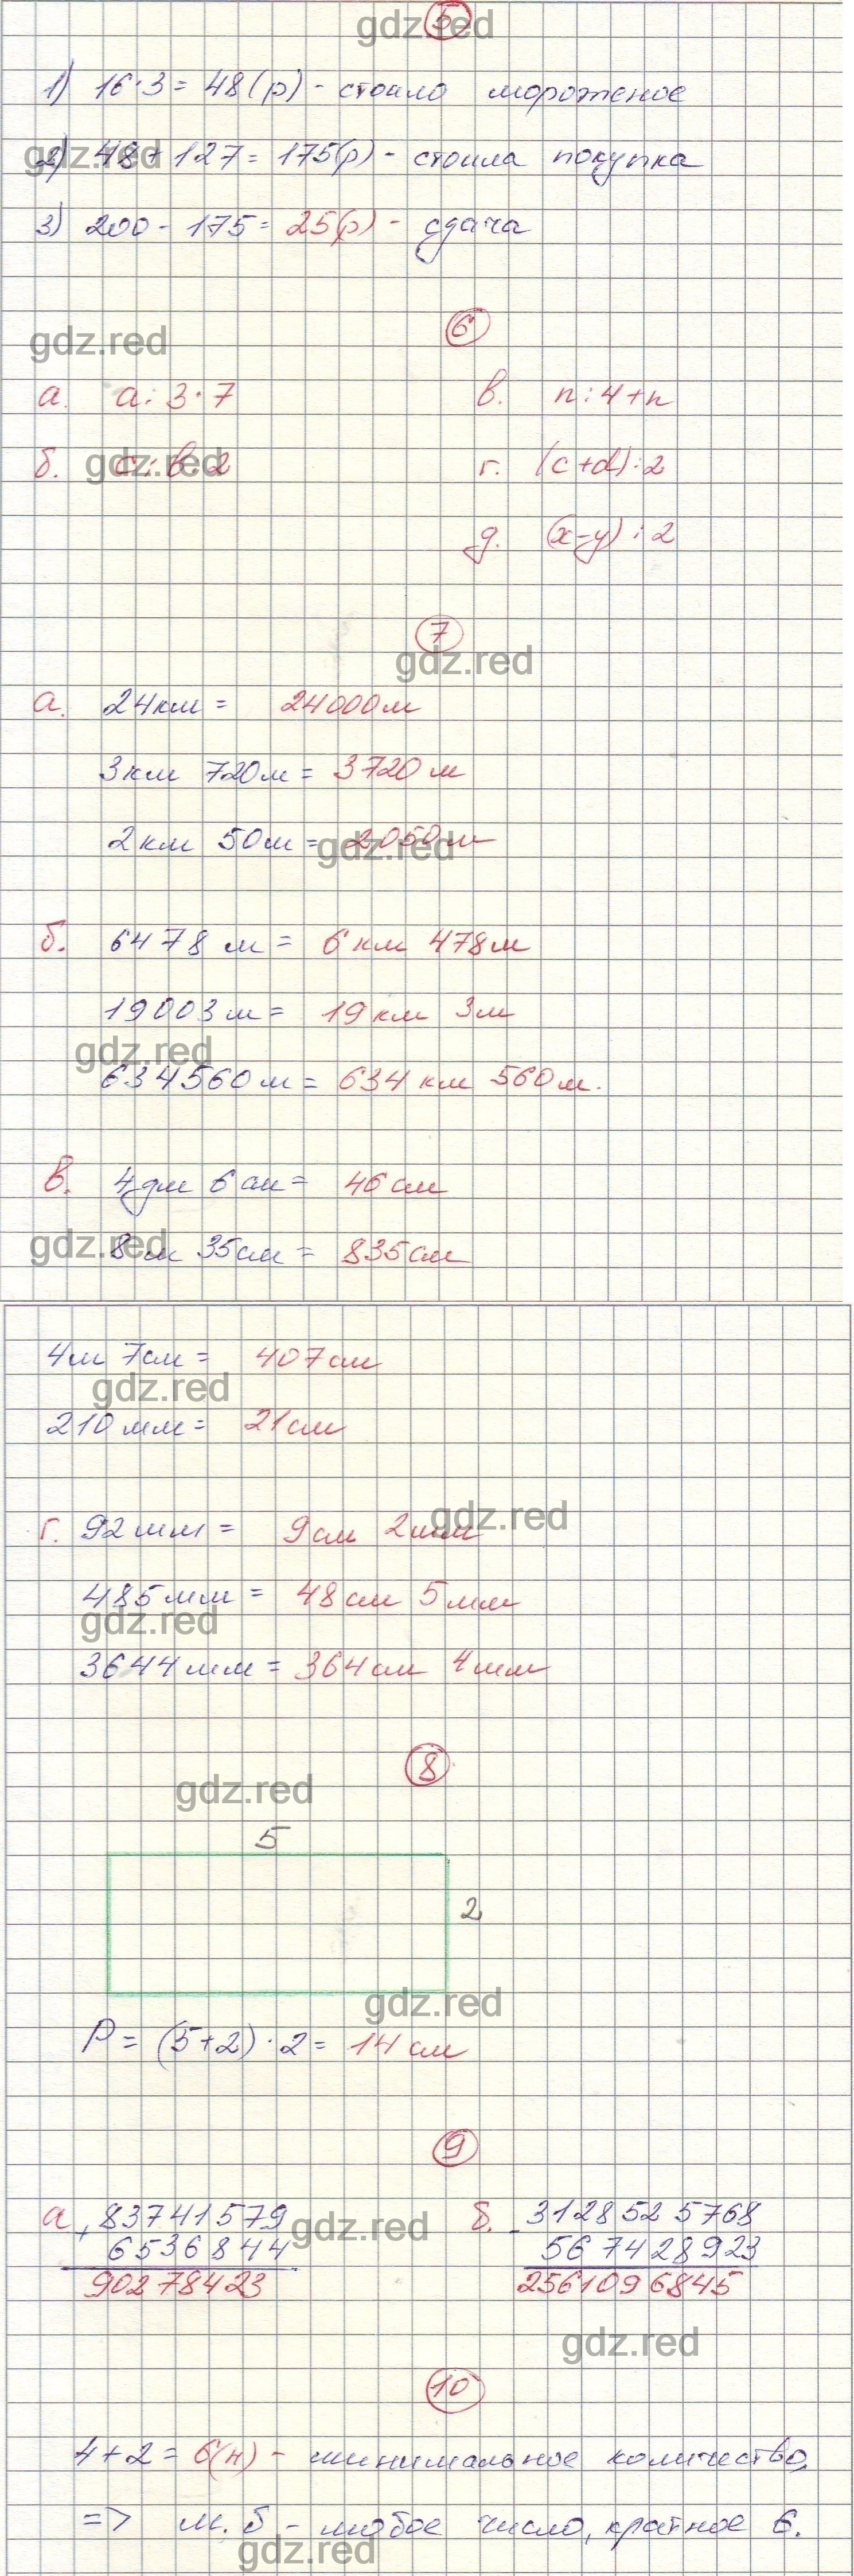 5
gdz.red
1) 16·3 = 48(р) - стоило мороженое
gdz.red
2) 48+127 = 175(р) - стоила покупка
3) 200 - 175 = 25(р) - сдача
6
gdz.red
а. a:3·7
в. n:4+n
б. c:b·2
gdz.red
г. (c+d):2
д. (x-y):2
7
gdz.red
а. 24км = 24000м
3км 720м = 3720м
2км 50м = 2050м
gdz.red
б. 6478м = 6км 478м
19003м = 19км 3м
gdz.red
634560м = 634км 560м.
в. 4дм 6см = 46см
gdz.red
8м 35см = 835см
4м 7см = 407см
gdz.red
210мм = 21см
г. 92мм = 9см 2мм
gdz.red
485мм = 48см 5мм
gdz.red
3644мм = 364см 4мм
8
gdz.red
5
2
gdz.red
P = (5+2)·2 = 14см
9
а + 83741579
6536844
90278423
gdz.red
б. - 3128525768
567428923
2561096845
gdz.red
10
4+2 = 6(н) - минимальное количество.
=> м.б - любое число, кратное 6.
gdz.red